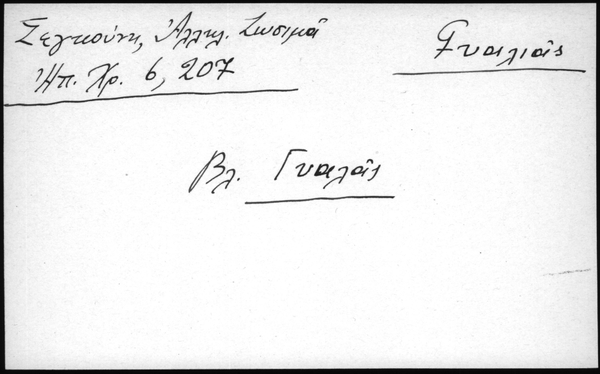 Σεγκούνη, Ἀλληλ. Ζωσιμᾶ
Ἠπ. Χρ. 6, 207
Γυαλιᾶς
Βλ. Γυαλᾶς